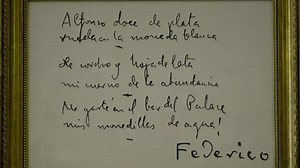 Alfonso doce de plata
rueda en la moneda blanca
De corcho y hoja de lata
mi cuerno de la abundancia
Me gasté en el bar del Palace
mis monedillas de agua!
Federico